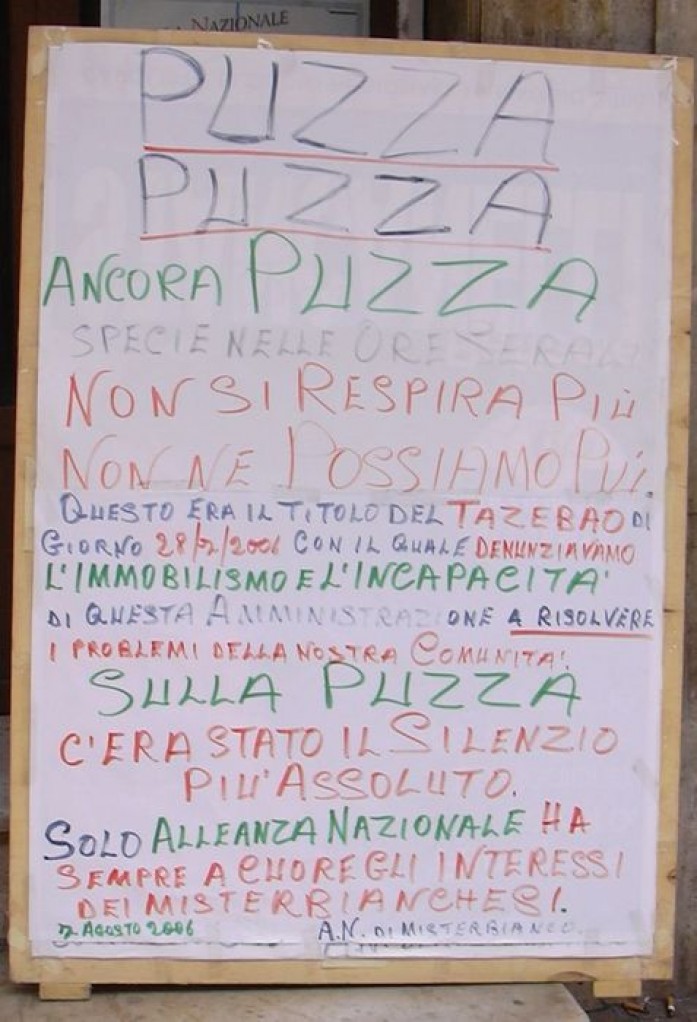 NAZIONALE
PUZZA
PUZZA
ANCORA PUZZA
SPECIE NELLE ORE SERALI
NON SI RESPIRA PIÙ
NON NE POSSIAMO PIÙ.
QUESTO ERA IL TITOLO DEL TAZEBAO DI
GIORNO 28/7/2006 CON IL QUALE DENUNZIAVAMO
L'IMMOBILISMO E L'INCAPACITA'
DI QUESTA AMMINISTRAZIONE A RISOLVERE
I PROBLEMI DELLA NOSTRA COMUNITA'.
SULLA PUZZA
C'ERA STATO IL SILENZIO
PIU' ASSOLUTO.
SOLO ALLEANZA NAZIONALE HA
SEMPRE A CUORE GLI INTERESSI
DEI MISTERBIANCHESI.
AGOSTO 2006 A.N. DI MISTERBIANCO.